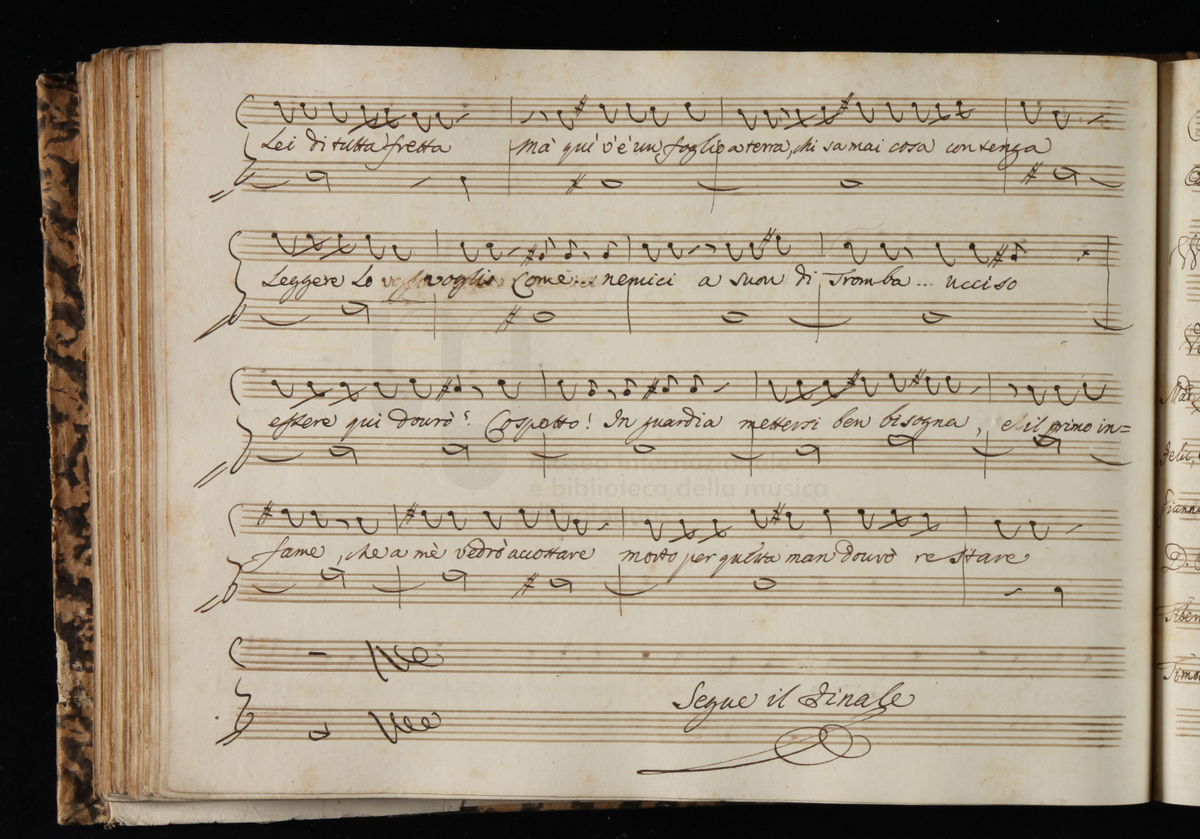 Lei di tutta fretta Mà qui v'è un foglio a terra, chi sa mai cosa contenga
Leggere Lo voglio Come... nemici a suon di Tromba... ucciso
essere qui dovrò? Cospetto! In guardia mettersi ben bisogna, e il primo in=
fame, che a mè vedrò accostare morto per questa man dovrò restare
Segue il Finale
e biblioteca della musica